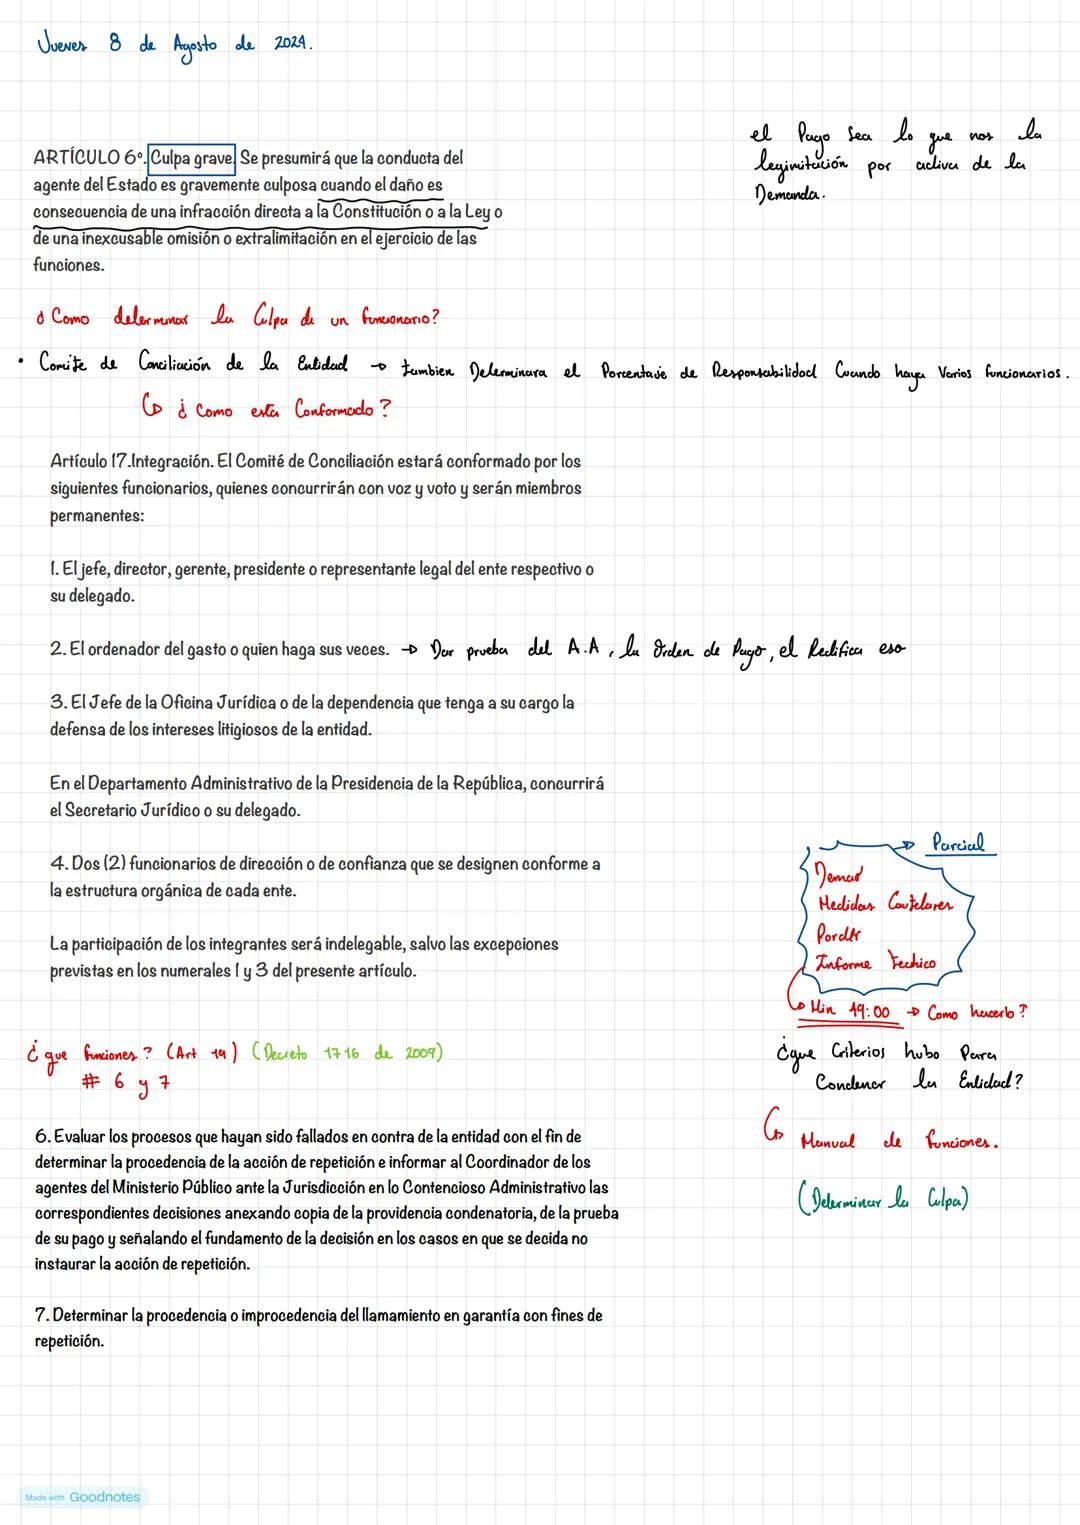 Jueves 8 de Agosto de 2024.
el Pago sea lo que nos la
legimitación por activa de la
Demanda.
ARTÍCULO 6º. Culpa grave. Se presumirá que la conducta del
agente del Estado es gravemente culposa cuando el daño es
consecuencia de una infracción directa a la Constitución o a la Ley o
de una inexcusable omisión o extralimitación en el ejercicio de las
funciones.
¿Como determinar la Culpa de un funcionario?
• Comite de Conciliación de la Entidad → tambien Determinara el Porcentaje de Responsabilidad Cuando haya Varios funcionarios.
↳ ¿Como esta Conformado?
Artículo 17.Integración. El Comité de Conciliación estará conformado por los
siguientes funcionarios, quienes concurrirán con voz y voto y serán miembros
permanentes:
1. El jefe, director, gerente, presidente o representante legal del ente respectivo o
su delegado.
2. El ordenador del gasto o quien haga sus veces. → Dar prueba del A.A, la Orden de Pago, el Redifica eso
3. El Jefe de la Oficina Jurídica o de la dependencia que tenga a su cargo la
defensa de los intereses litigiosos de la entidad.
En el Departamento Administrativo de la Presidencia de la República, concurrirá
el Secretario Jurídico o su delegado.
4. Dos (2) funcionarios de dirección o de confianza que se designen conforme a
la estructura orgánica de cada ente.
La participación de los integrantes será indelegable, salvo las excepciones
previstas en los numerales 1 y 3 del presente artículo.
→ Parcial
Medidas Cautelares
Informe Techico
↳ Min 49:00 → Como hacerlo?
¿que Criterios hubo Para
Condenar la Entidad?
↳ Manual de funciones.
(Determinar la Culpa)
¿que funciones? (Art 19) (Decreto 1716 de 2009)
# 6 y 7
6. Evaluar los procesos que hayan sido fallados en contra de la entidad con el fin de
determinar la procedencia de la acción de repetición e informar al Coordinador de los
agentes del Ministerio Público ante la Jurisdicción en lo Contencioso Administrativo las
correspondientes decisiones anexando copia de la providencia condenatoria, de la prueba
de su pago y señalando el fundamento de la decisión en los casos en que se decida no
instaurar la acción de repetición.
7. Determinar la procedencia o improcedencia del llamamiento en garantía con fines de
repetición.
Made with Goodnotes